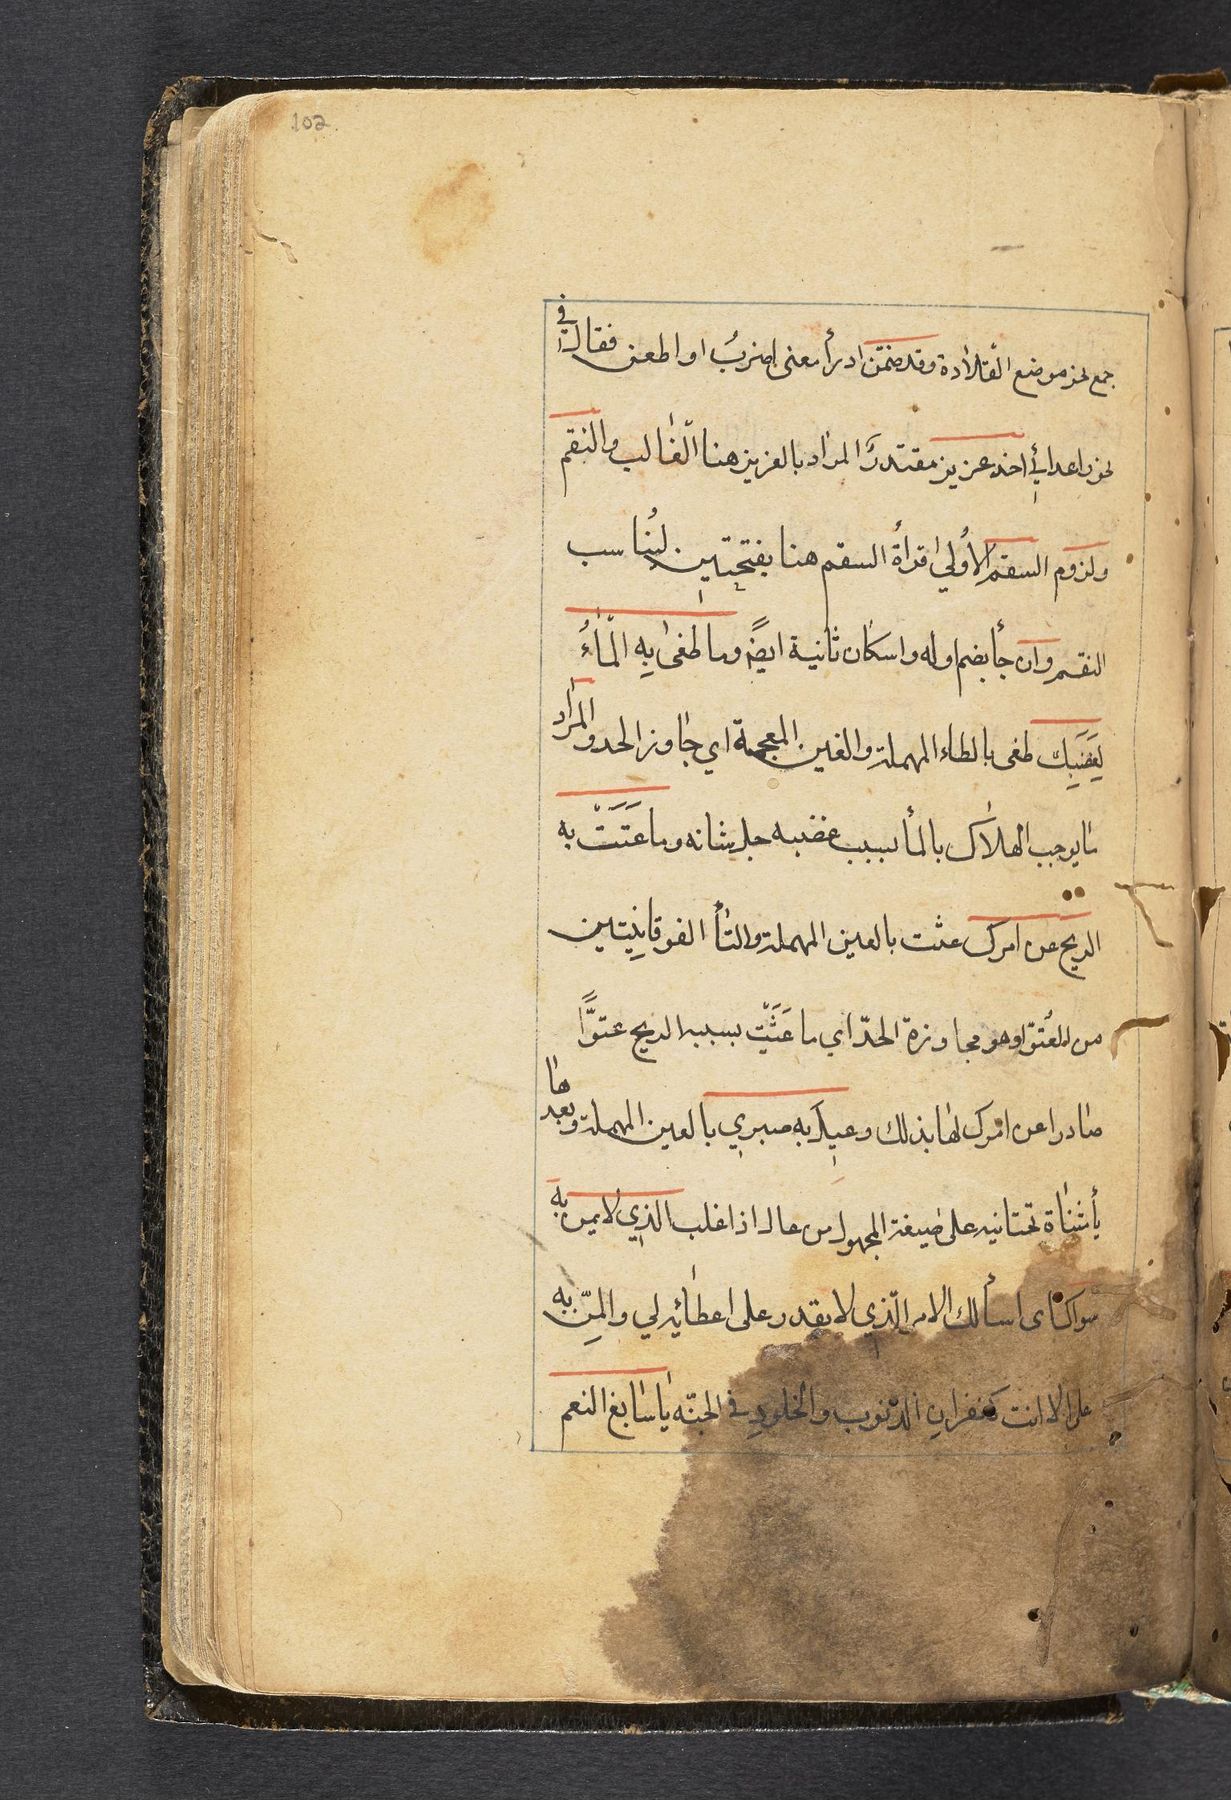 102
جمع نحر موضع القلادة وقد ضمّن ادرأ معنى اضربُ او اطعن فقال في
نحور اعدائي اخذ عزيز مقتدرٍ المراد بالعزيز هنا الغالب والنقم
ولزوم السقم الأولى اقرأة السقم هنا بفتحتين ليُناسب
النقم وان جأ بضم اوله واسكان ثانية ايضًا وما طغى بِهِ المَاءُ
لِغَضَبِك طغى بالطاء المهملة والغين المعجمة اي جاوز الحد والمراد
ما يوجب الهلاك بالمأ بسبب غضبه جل شانه وما عَتَتْ به
الريح عن امرك عتت بالعين المهملة والتأ الفوقانيتين
من العُتوّ وهو مجاوزة الحدّ اي ما عَتَتْ بسببه الريح عتوًّا
صادرا عن امرك لها بذلك وعيل به صبري بالعين المهملة وبعدها
يأ مثناة تحتانيه على صيغة المجهول من عال اذا غلب الذي لا يمن به
سواك اى اسألك الامر الّذي لا يقدر على اعطائِه لي والمنِّ به
علي الا انت كغفران الذنوب والخلود في الجنّه يا سابغ النعم